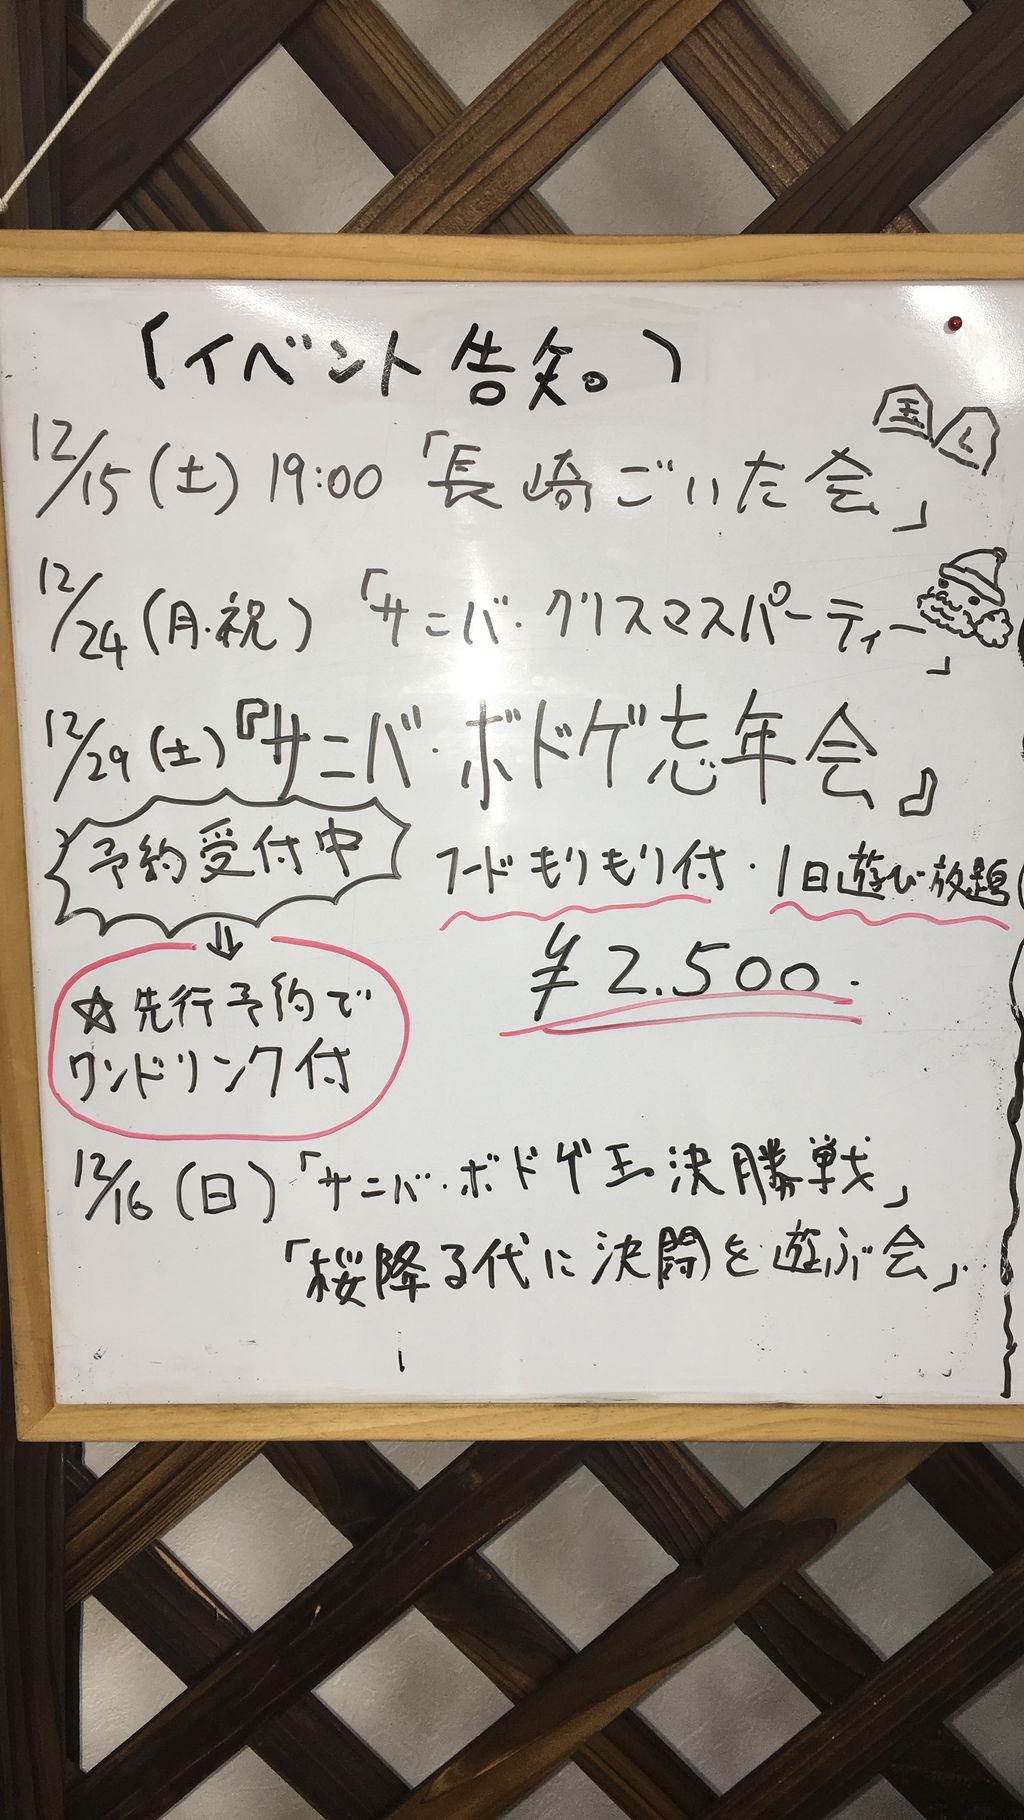 「イベント告知。)
玉 し
12/15(土) 19:00 「長崎ごいた会」
12/24(月・祝) 「サニバ・クリスマスパーティー」
12/29(土)『サニバ・ボドゲ忘年会』
予約受付中
フードもりもり付・1日遊び放題
¥2.500.
⇓
☆先行予約で
ワンドリンク付
12/16(日)「サニバ・ボドゲ王決勝戦」
「桜降る代に決闘を遊ぶ会」